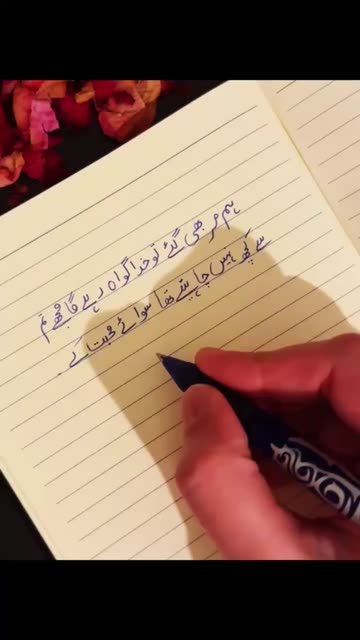 ہم مر بھی گئے تو خدا گواہ رہے گا مجھے تم
سے کچھ نہیں چاہیئے تھا سوائے محبت کے ۔